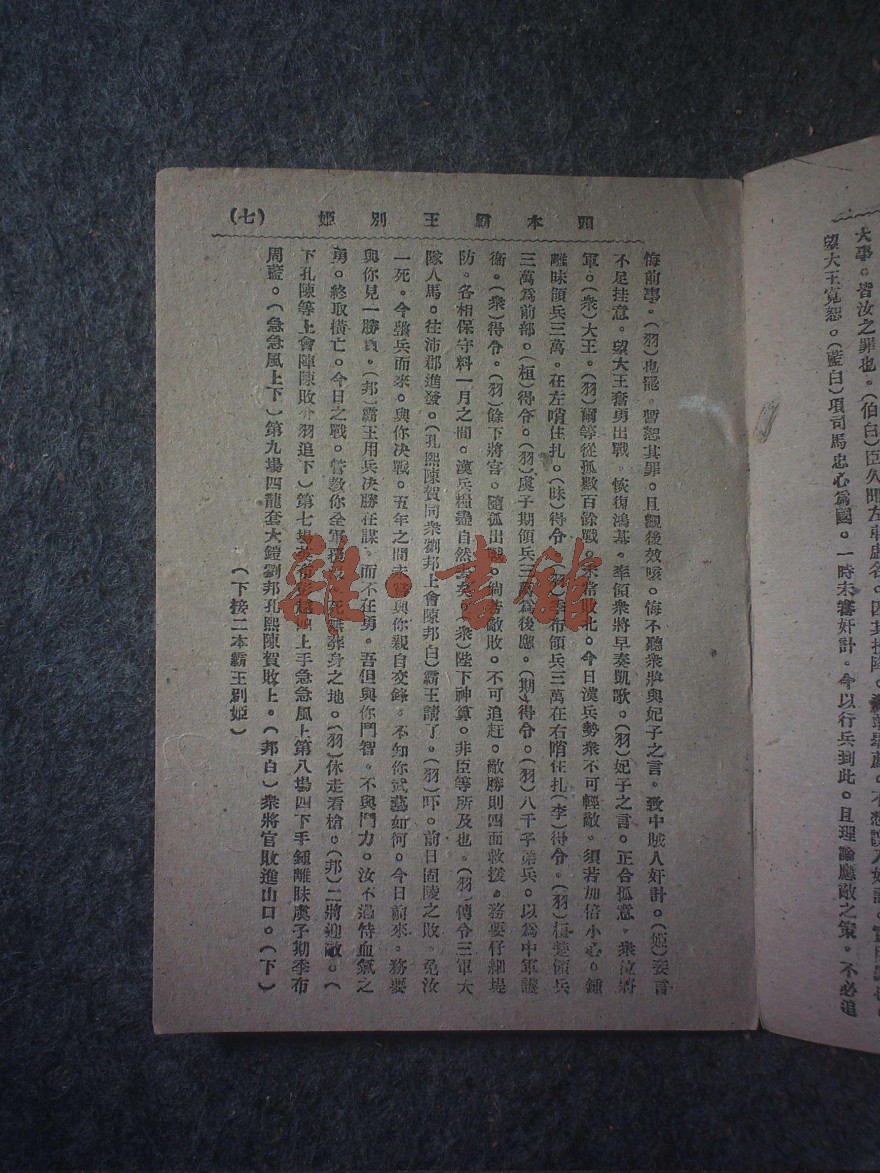 大事。皆汝之罪也。(伯白)臣久聞左車虛名。因其投降。
望大王寬恕。(藍白)項司馬忠心為國。一時未審奸計。今以行兵到此。且理論應敵之策。不必追
頭本霸王別姬
(七)
悔前事。(羽)也罷。暫恕其罪。且觀後效咳。悔不聽衆將與妃子之言。致中賊人奸計。(姬)妾言
不足挂意。望大王奮勇出戰。恢復鴻基。率領衆將早奏凱歌。(羽)妃子之言。正合孤意。衆位將
軍。(衆)大王。(羽)爾等從孤數百餘戰。未嘗敗北。今日漢兵勢衆不可輕敵。須若加倍小心。鍾
離昧領兵三萬。在左哨住扎。(昧)得令。(羽)季布領兵三萬在右哨住扎(季)得令。(羽)桓楚領兵
三萬為前部。(桓)得令。(羽)虞子期領兵三萬為後應。(期)得令。(羽)八千子弟兵。以為中軍護
衛。(衆)得令。(羽)餘下將官。隨孤出戰。倘若敵敗。不可追赶。敵勝則四面救援。務要仔細堤
防。各相保守料一月之間。漢兵糧盡自然去矣。(衆)陛下神算。非臣等所及也。(羽)傳令三軍大
隊人馬。往沛郡進發。(孔熙陳賀同衆劉邦上會陳邦白)霸王請了。(羽)吓。前日固陵之敗。免汝
一死。今整兵而來。與你決戰。五年之間未嘗與你親自交鋒。不知你武藝如何。今日前來。務要
與你見一勝負。(邦)霸王用兵決勝在謀。而不在勇。吾但與你鬥智。不與鬥力。汝不過恃血氣之
勇。終取橫亡。今日之戰。管教你全軍 死無葬身之地。(羽)休走看槍。(邦)二將迎敵。(
下孔陳等上會陣陳敗介羽追下)第七場英布 上手急急風上第八場四下手鍾離昧虞子期季布
周藍。(急急風上下)第九場四龍套大鎧劉邦孔熙陳賀敗上。(邦白)衆將官敗進山口。(下)
(下接二本霸王別姬)
雜·書館